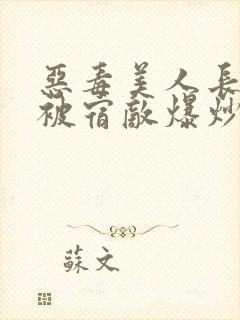 惡毒美人長
被宿敵爆炒
蘇文